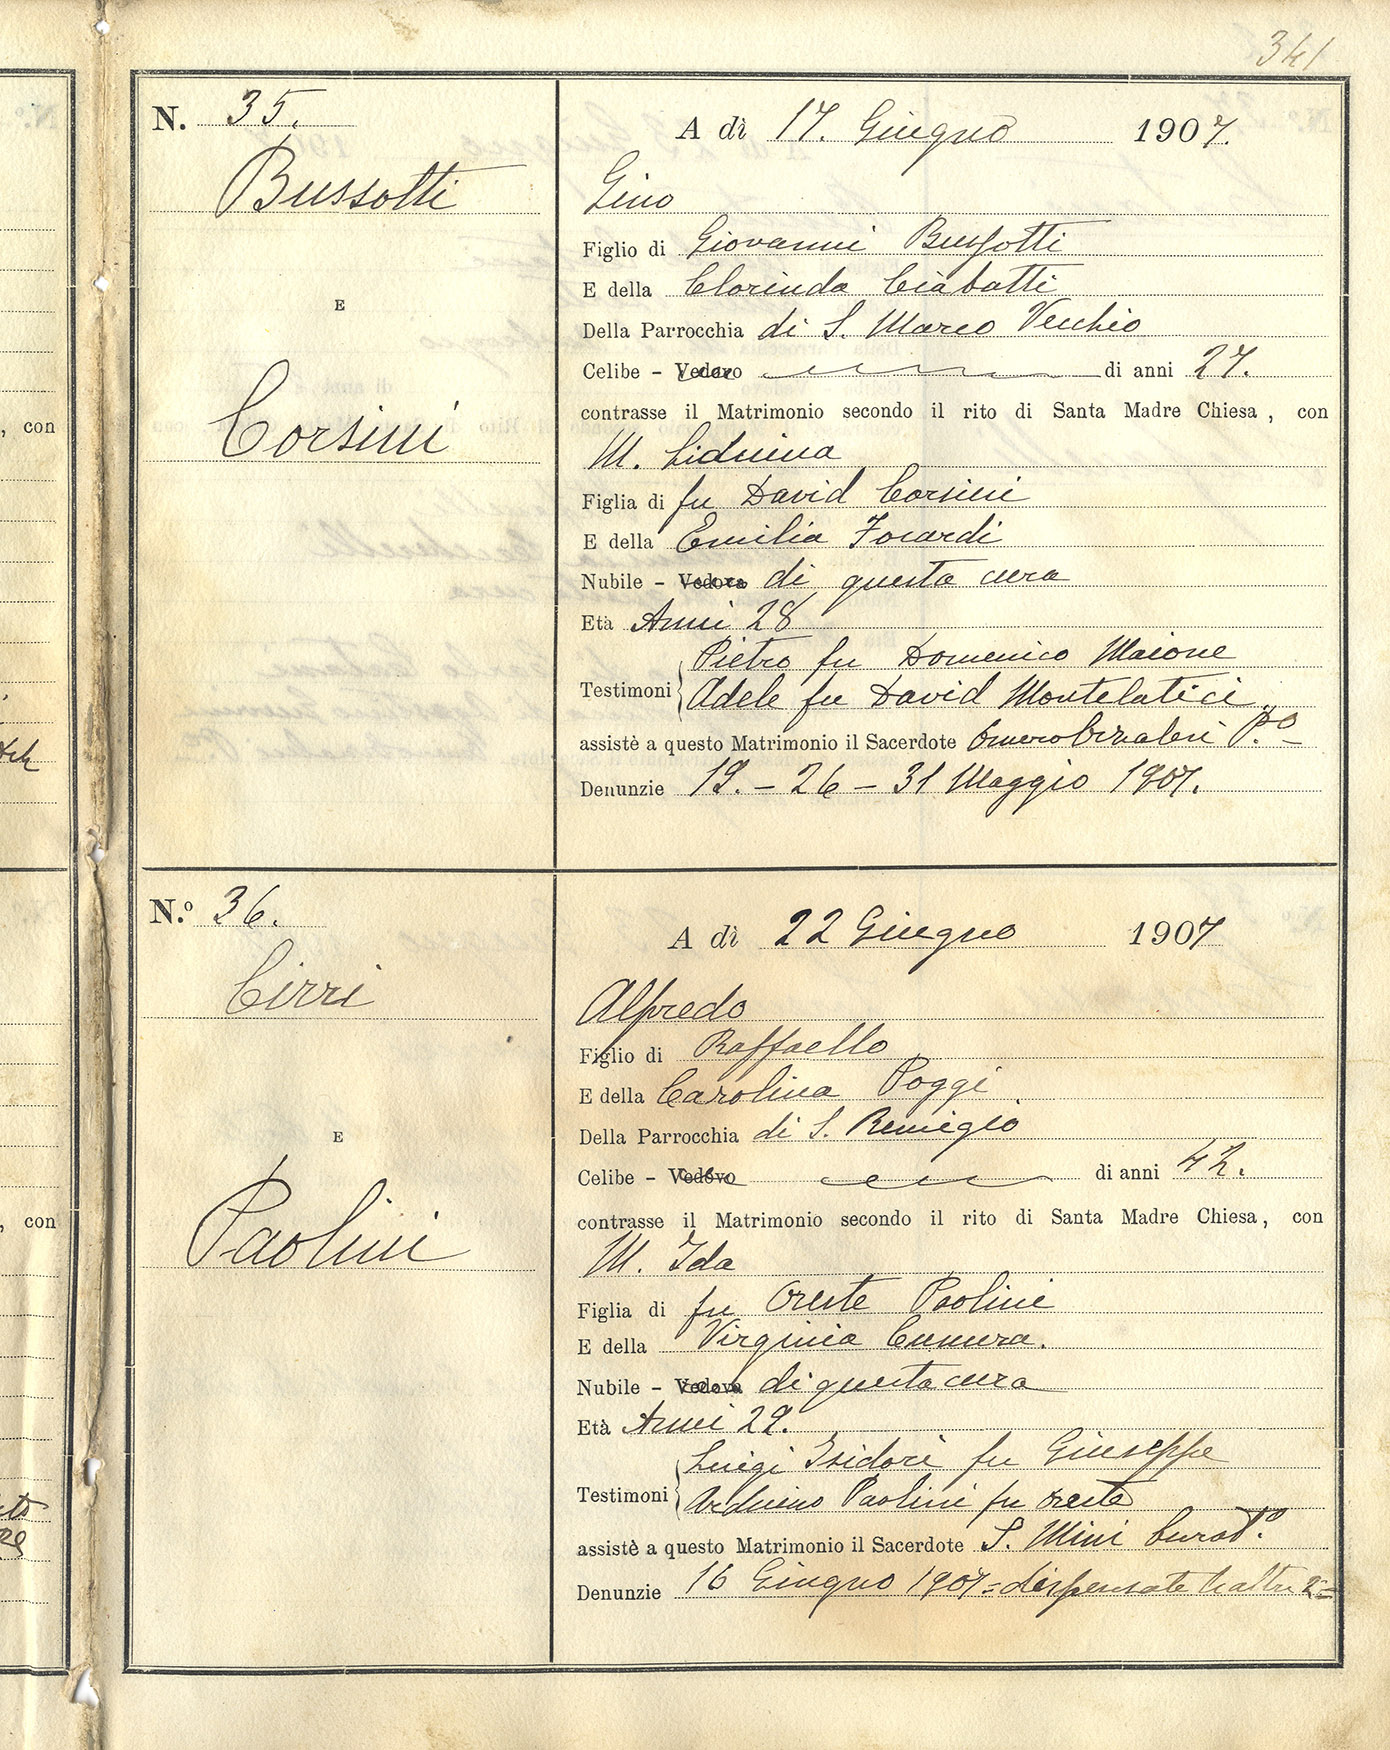 341
N. 35.
Bussotti
E
Corsini
A dì 17. Giugno 1907.
Gino
Figlio di Giovanni Bussotti
E della Clorinda Ciabatti
Della Parrocchia di S. Marco Vecchio
Celibe - Vedovo di anni 27.
contrasse il Matrimonio secondo il rito di Santa Madre Chiesa, con
M. Liduina
Figlia di fu David Corsini
E della Emilia Focardi
Nubile - Vedova di questa cura
Età Anni 28
Pietro fu Domenico Maione
Testimoni
Adele fu David Montelatici
assistè a questo Matrimonio il Sacerdote P.º
Denunzie 19. - 26 - 31 Maggio 1907.
N.º 36.
Cirri
E
Paolini
A dì 22 Giugno 1907
Alfredo
Figlio di Raffaello
E della Carolina Poggi
Della Parrocchia di S. Remigio
Celibe - Vedovo di anni 42.
contrasse il Matrimonio secondo il rito di Santa Madre Chiesa, con
M. Ida
Figlia di fu Oreste Paolini
E della Virginia
Nubile - Vedova di questa cura
Età Anni 29.
Luigi Isidori fu Giuseppe
Testimoni
Arduino Paolini fu Oreste
assistè a questo Matrimonio il Sacerdote S. Mini Curat.º
Denunzie 16 Giugno 1907 = dispensate altre 2 =
, con
, con